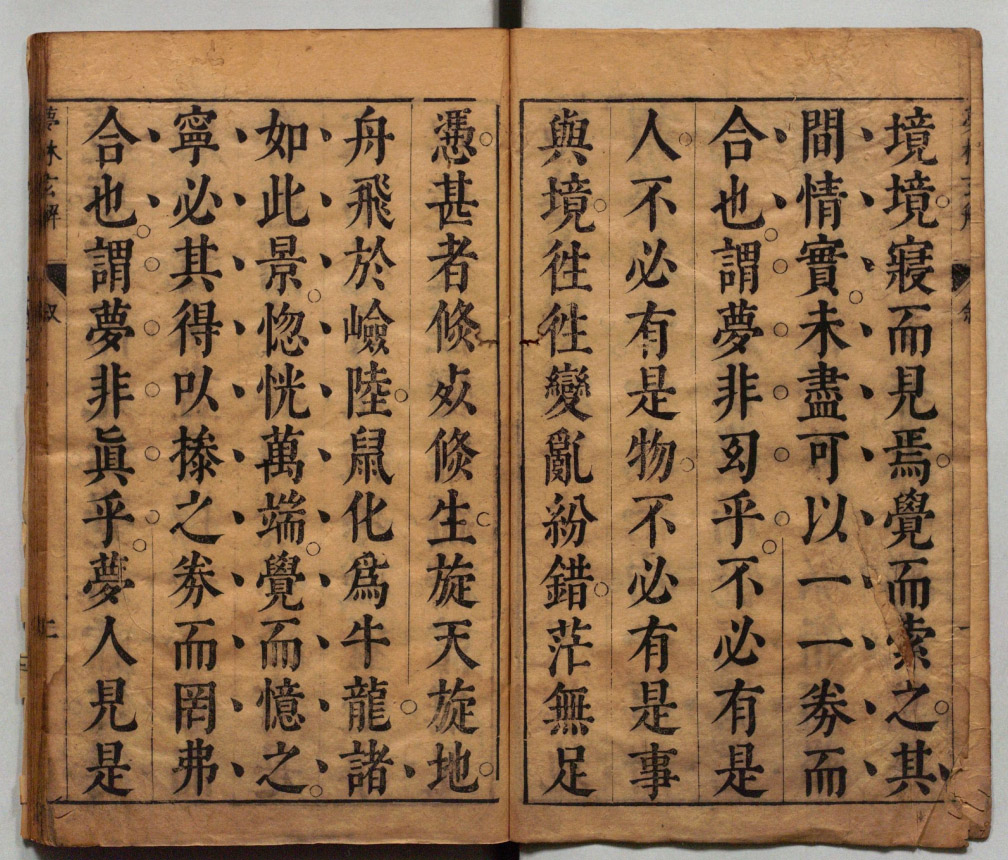 境境寢而見焉覺而索之其
間情實未盡可以一一劵而
合也謂夢非幻乎不必有是
人不必有是物不必有是事
與境徃徃變亂紛錯茫無足
憑甚者倐𣦸倐生旋天旋地
舟飛於嶮陸鼠化爲牛龍諸
如此景惚恍萬端覺而憶之
寧必其得以搽之劵而罔弗
合也謂夢非眞乎夢人見是
夢林玄解
敘
二